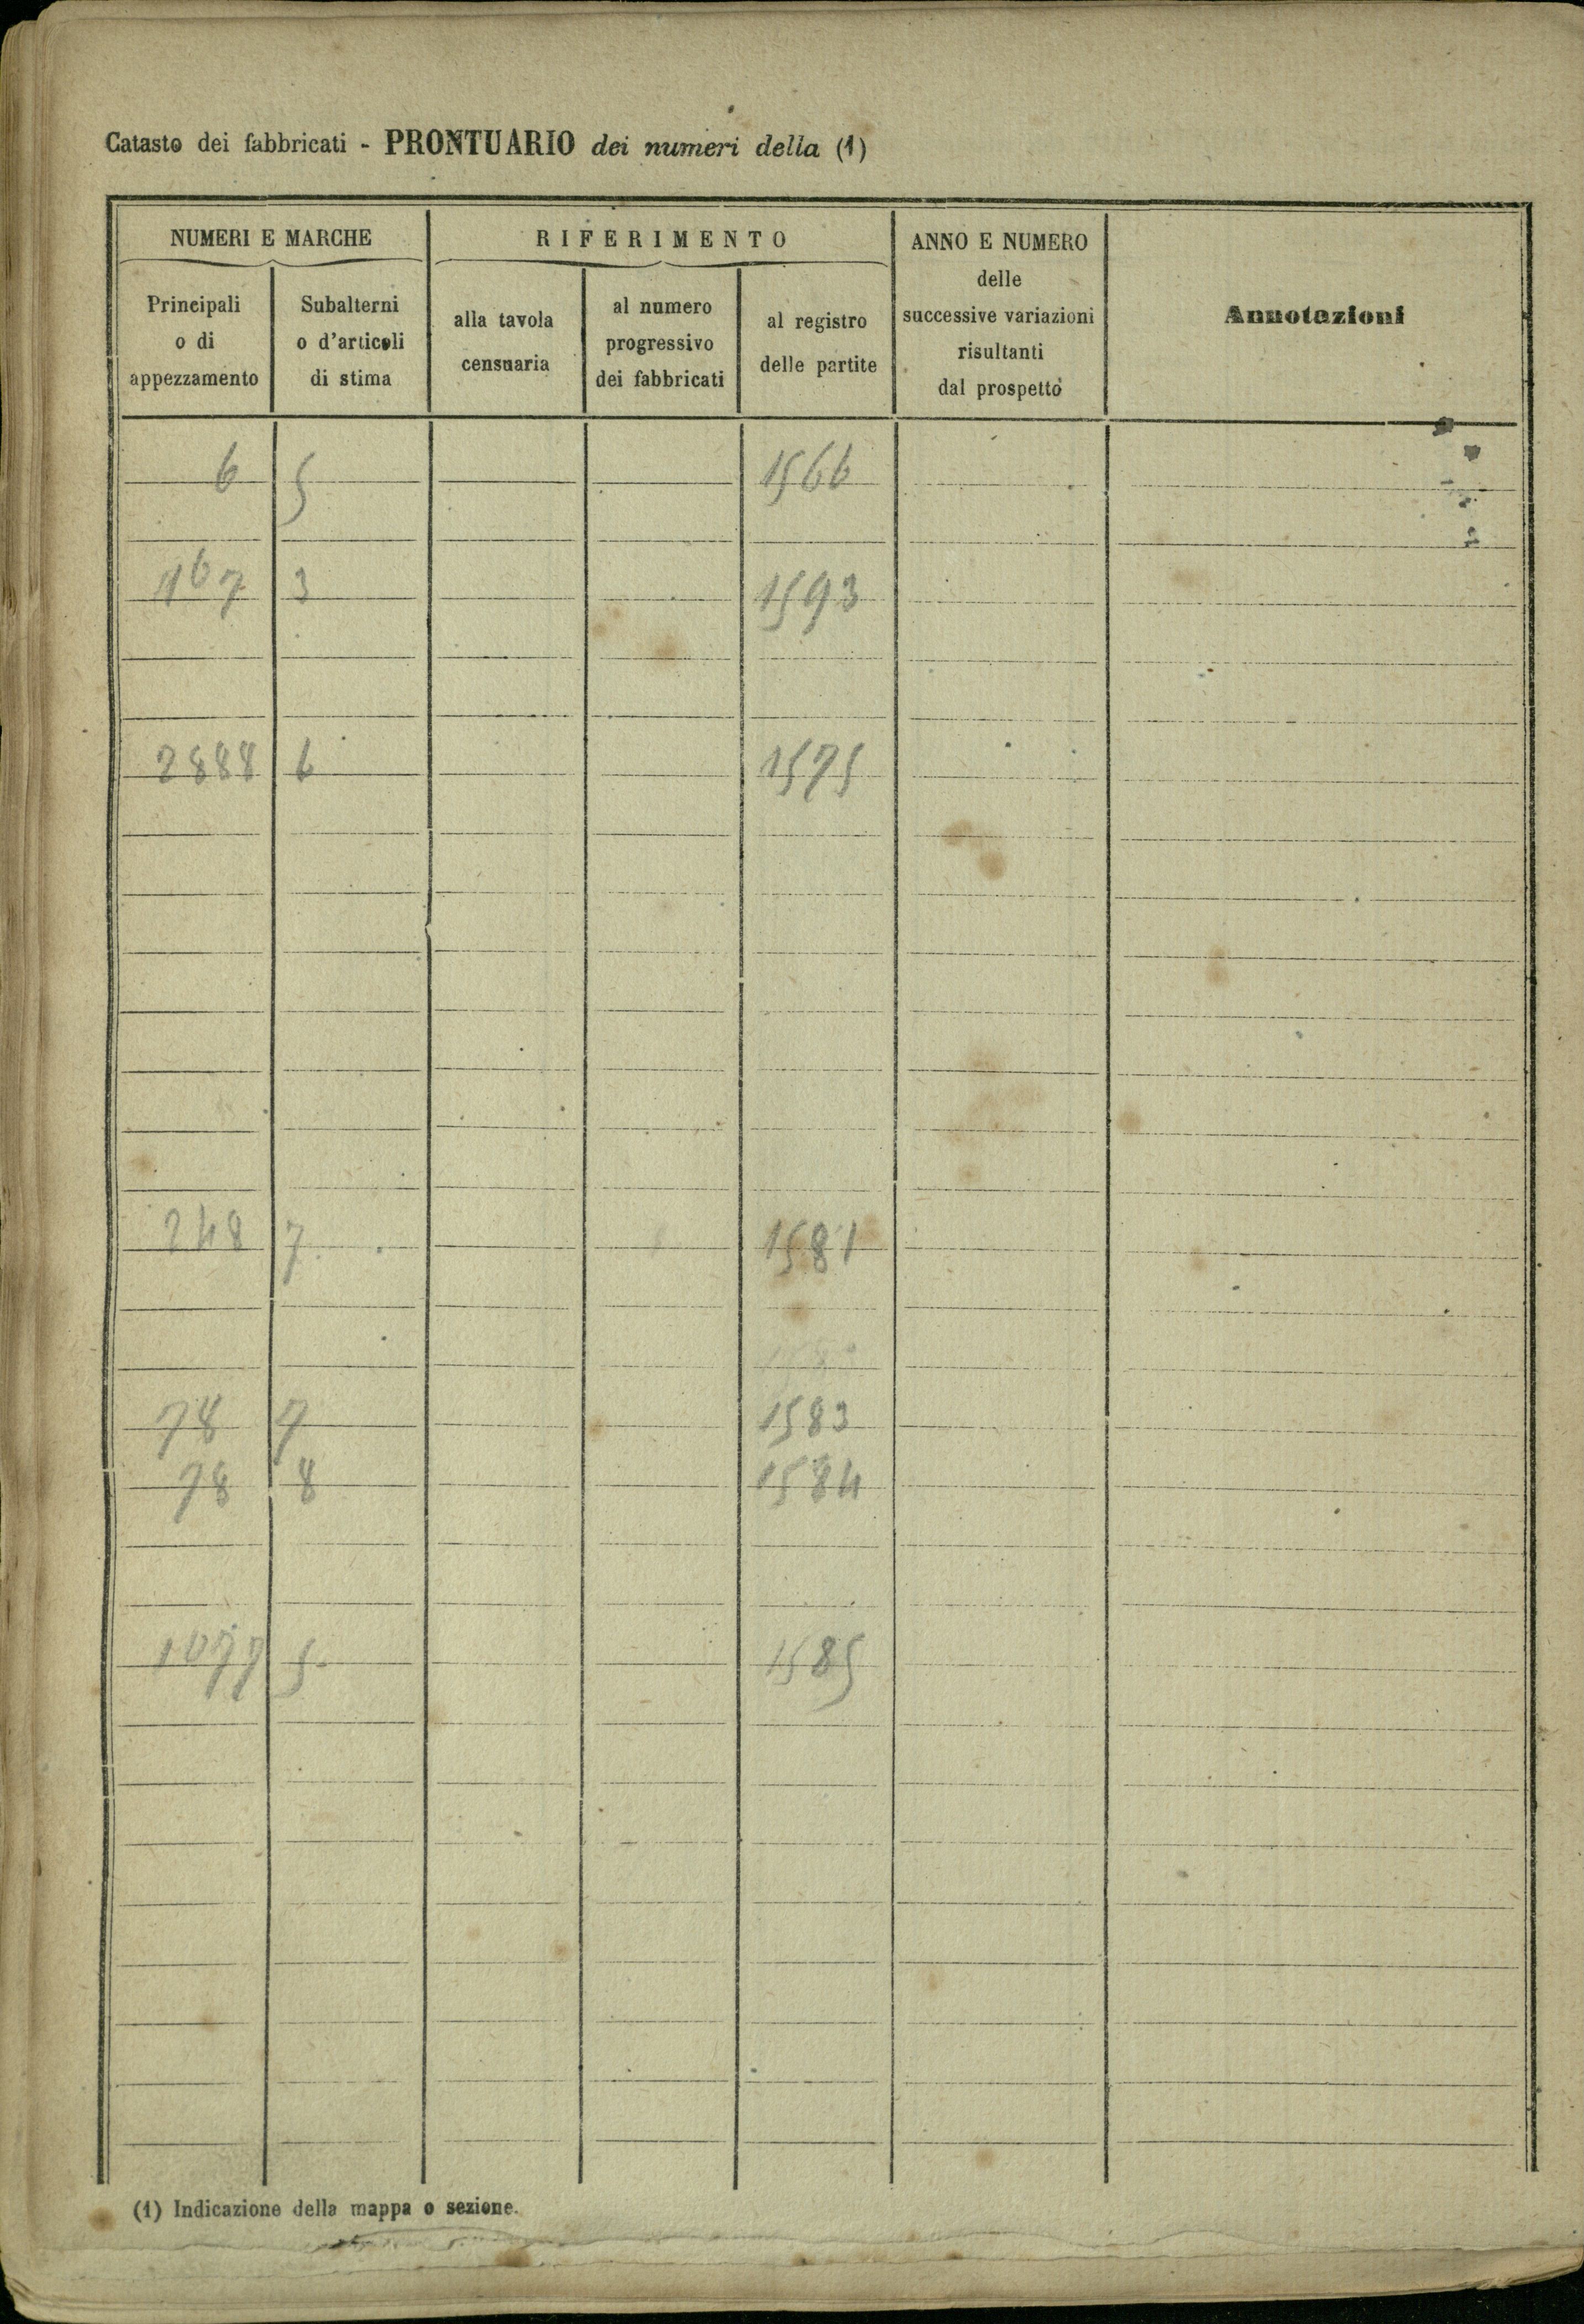 Catasto dei fabbricati - PRONTUARIO dei numeri della (1)
NUMERI E MARCHE
Principali
o di
appezzamento
Subalterni
o d'articoli
di stima
RIFERIMENTO
alla tavola
censuaria
al numero
progressivo
dei fabbricati
al registro
delle partite
ANNO E NUMERO
delle
successive variazioni
risultanti
dal prospetto
Annotazioni
6 5 1566
167 3 1593
2888 6 1575
248 7 1581
78 7 1583
78 8 1584
1077 5 1585
(1) Indicazione della mappa o sezione.